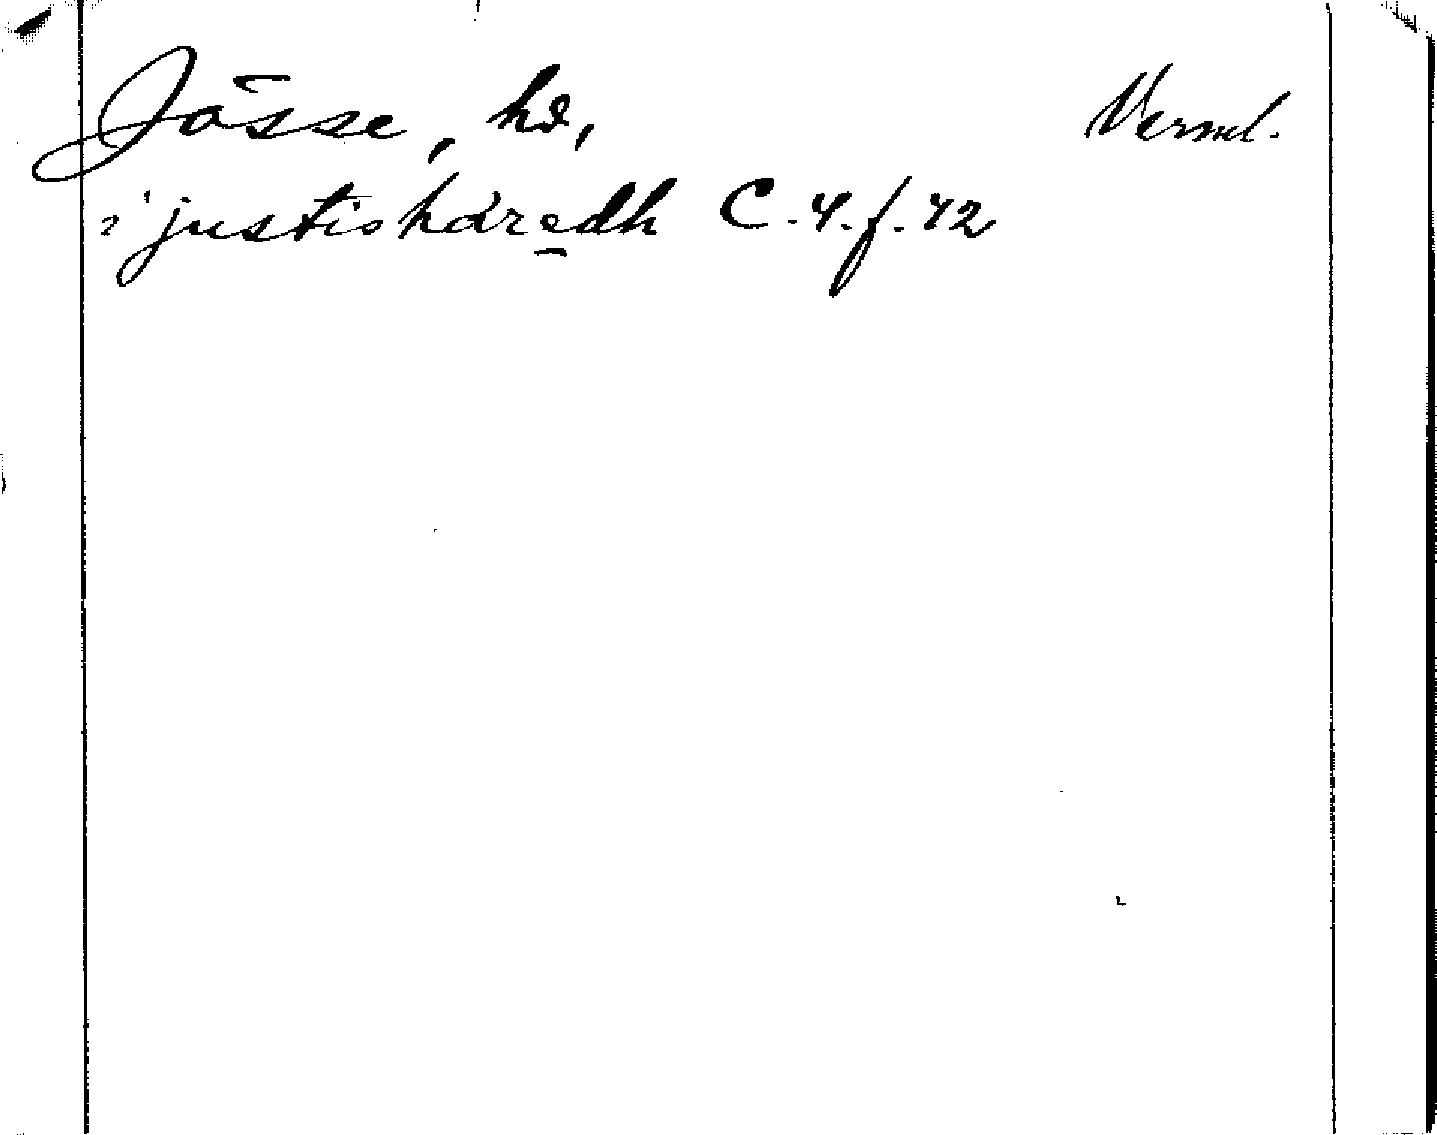 Jösse, hd, Verml.
i justishäredh C. 4. f. 42